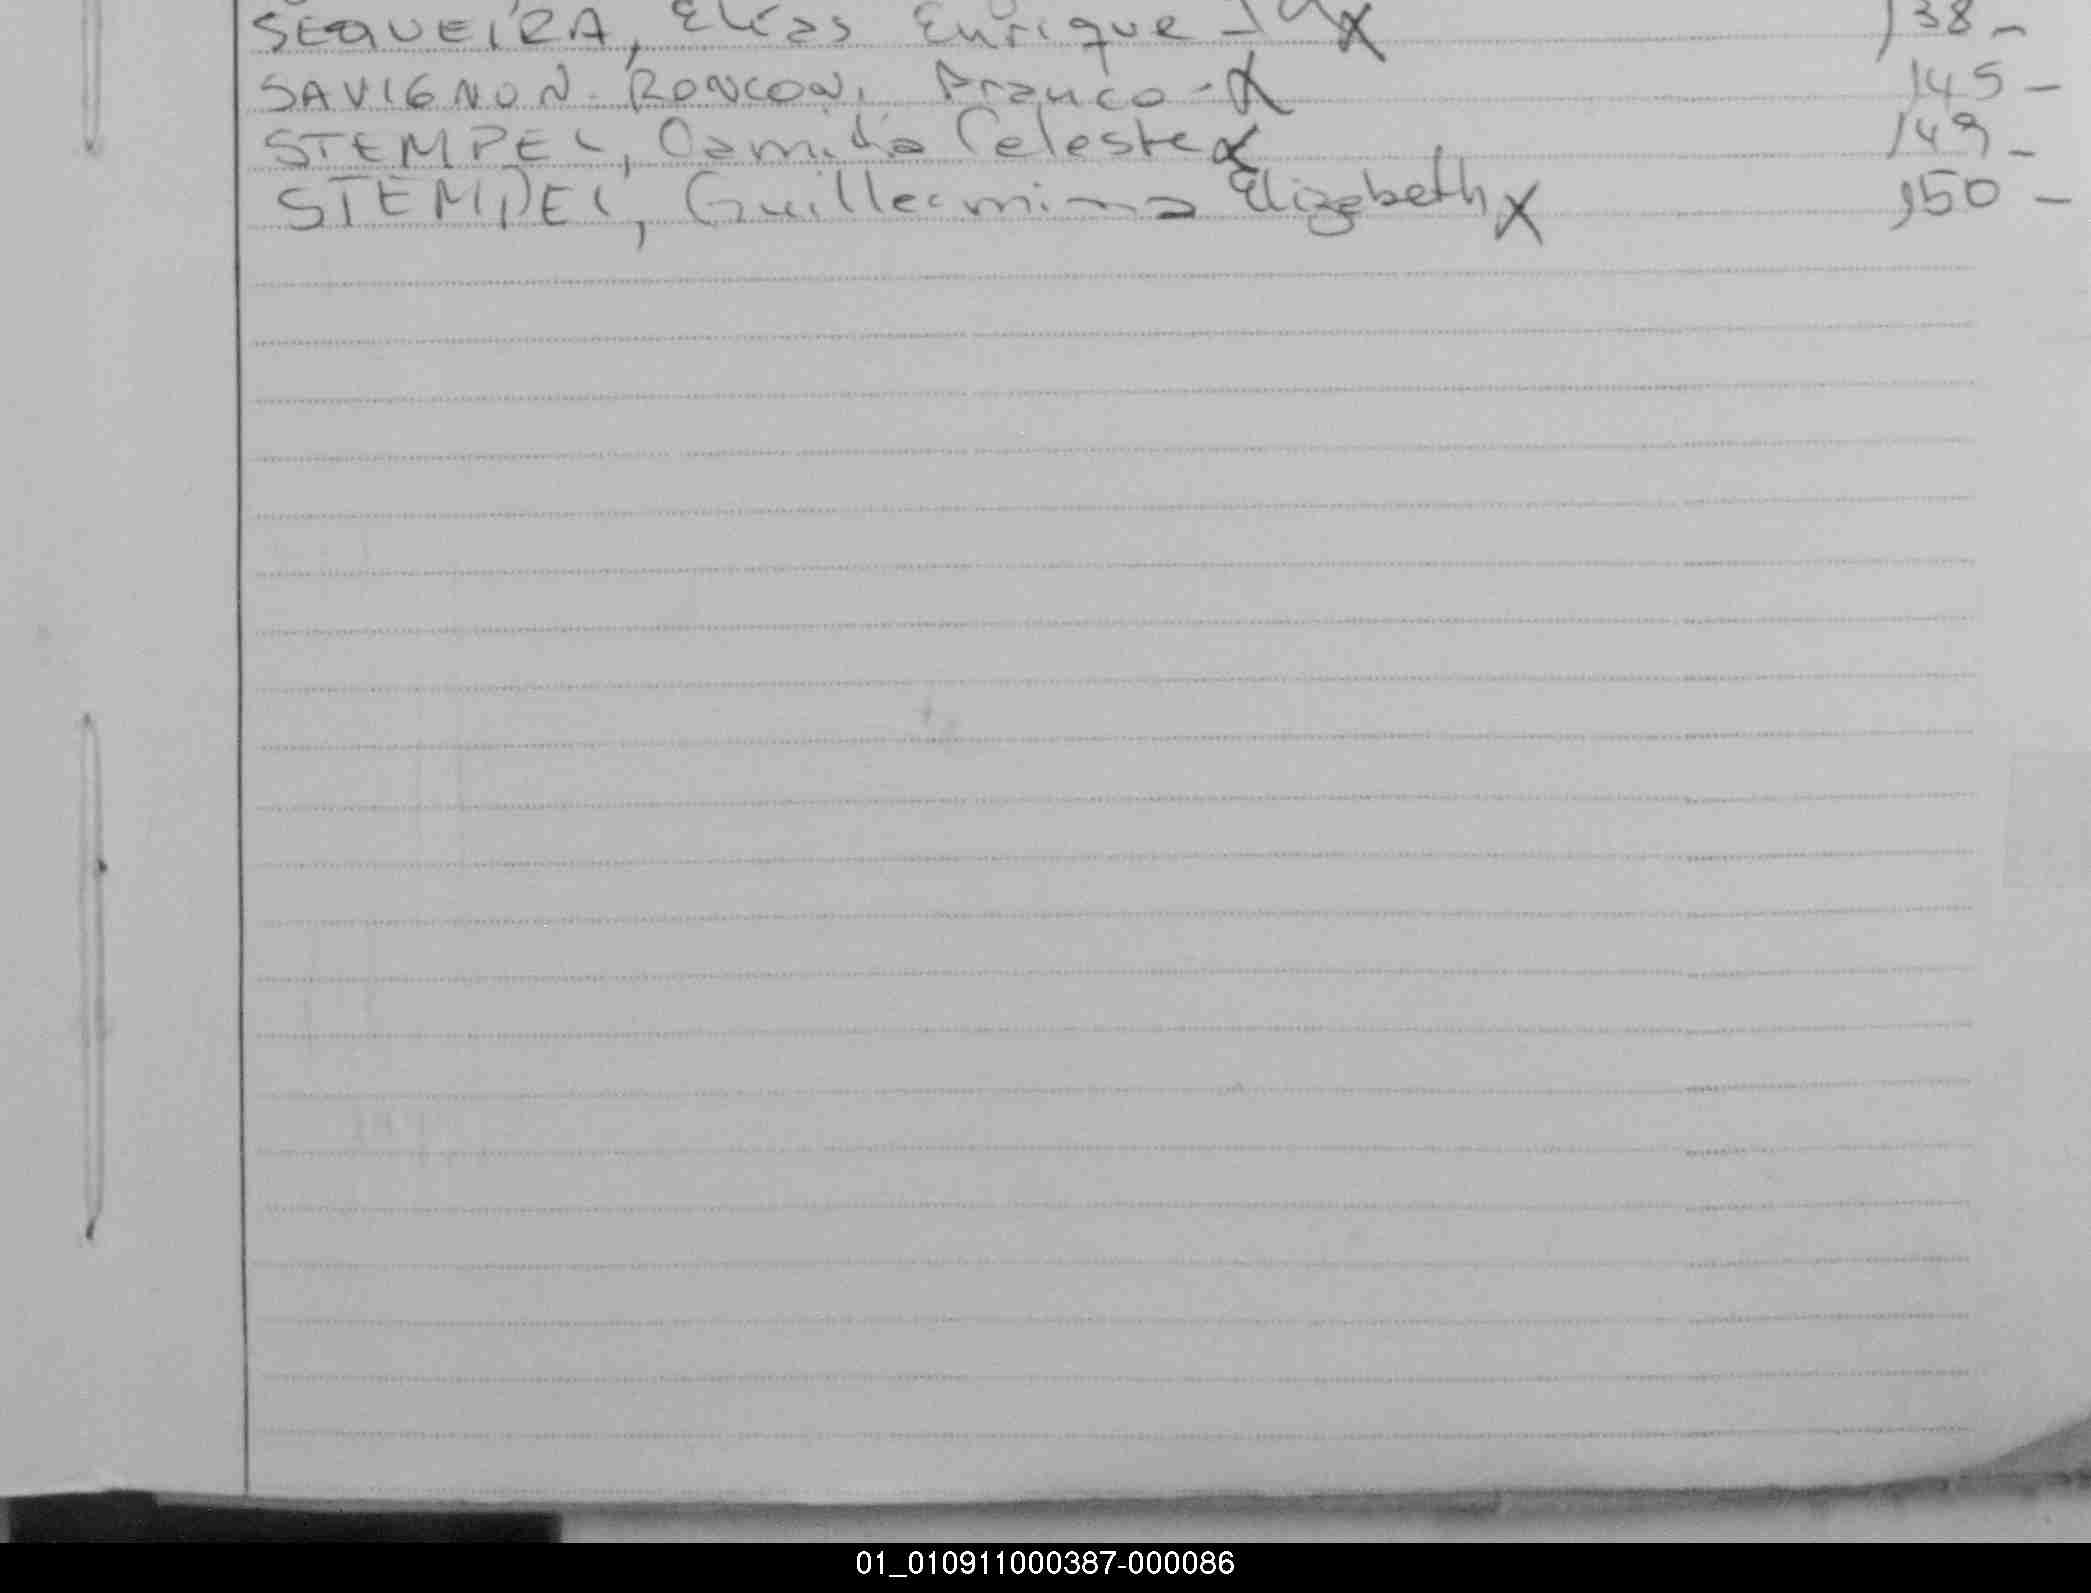 SEQUEIRA, Elías Enrique - X 138 -
SAVIGNON RONCONI, Franco - X 145 -
STEMPEL, Camila Celeste X 149 -
STEMPEL, Guillermina Elizabeth X 150 -
01_010911000387-000086